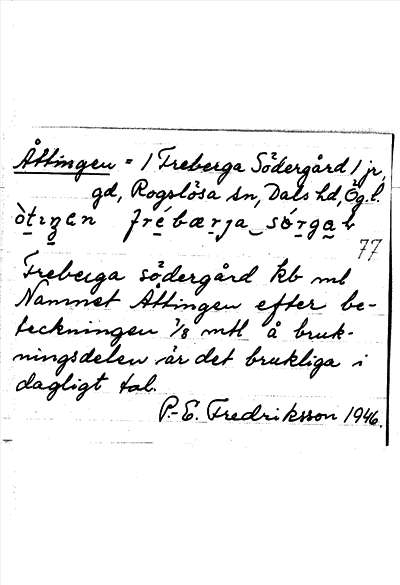 Åttingen = / Treberga Södergård / jr,
gd, Rogslösa sn, Dals hd, Ög. l.
77
Treberga södergård kb ml
Namnet Åttingen efter be-
teckningen 1/8 mtl å bruk-
ningsdelen är det brukliga i
dagligt tal.
P.-E. Fredriksson 1946.